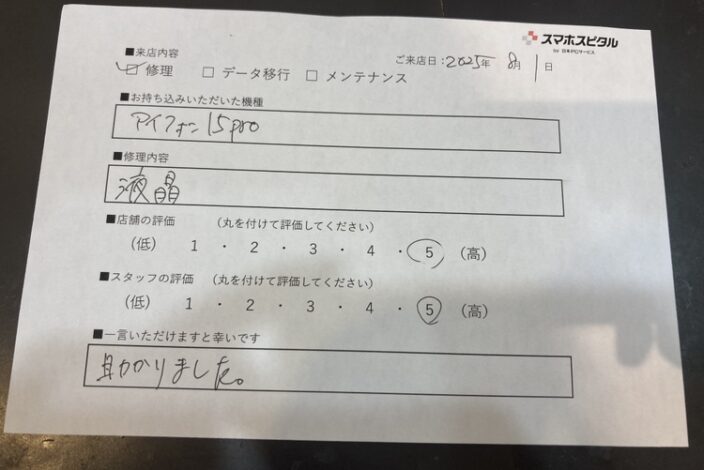 スマホスピタル
by 日本PCサービス
■来店内容
ご来店日：2025年 8月 1日
修理 □ データ移行 □ メンテナンス
■お持ち込みいただいた機種
アイフォン15pro
■修理内容
液晶
■店舗の評価 （丸を付けて評価してください）
（低） 1 ・ 2 ・ 3 ・ 4 ・ 5 （高）
■スタッフの評価 （丸を付けて評価してください）
（低） 1 ・ 2 ・ 3 ・ 4 ・ 5 （高）
■一言いただけますと幸いです
助かりました。